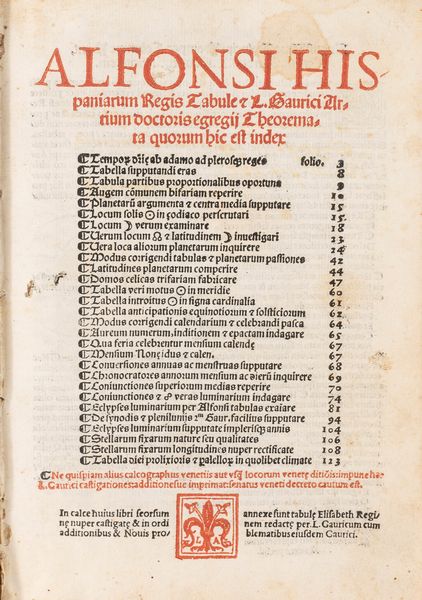 ALFONSI HIS
paniarum Regis Tabule ⁊ L. Gaurici Ar-
tium doctoris egregij Theorema-
ta quorum hic est index
¶Tempoꝝ dr̃ie ab adamo ad plerosqꝫ reges folio. 3
¶Tabella supputandi eras 8
¶Tabula partibus proportionalibus oportuna 9
¶Augem cõmunem bifariam reperire 10
¶Planetarũ argumenta ⁊ centra media supputare 15
¶Locum solis ☉ in zodiaco perscrutari 15.
¶Locum ☽ verum examinare 18
¶Uerum locum ☊ ⁊ latitudinem ☽ inuestigari 23
¶Uera loca aliorum planetarum inquirere 24
¶Modus corrigendi tabulas ⁊ planetarum passiones 42
¶Latitudines planetarum comperire 44
¶Domos celicas trifariam fabricare 47
¶Tabella veri motus ☉ in meridie 60
¶Tabella introitus ☉ in signa cardinalia 61
¶Tabella anticipationis equinotiorum ⁊ solsticiorum 62
¶Modus corrigendi calendarium ⁊ celebrandi pasca 64
¶Aureum numerum, inditionem ⁊ epactam indagare 65
¶Qua feria celebrentur mensium calendę 67
¶Mensium Nonę, idus ⁊ calen. 67
¶Conuersiones annuas ac menstruas supputare 68
¶Chronocratores annorum mensium ac dierũ inquirere 69
¶Coniunctiones superiorum medias reperire 70
¶Coniunctiones ⁊ ☍ veras luminarium indagare 74
¶Eclypses luminarium per Alfonsi tabulas exaiare 81
¶De synodis ⁊ plenilunijs 2m Gaur. facilius supputare 94
¶Eclypses luminarium supputate implerisqꝫ annis 104
¶Stellarum fixarum nature seu qualitates 106
¶Stellarum fixarum longitudines nuper rectificate 108
¶Tabula diei prolixioris ⁊ parallelorum in quolibet climate 123
¶Ne quispiam alius calcographus venetijs aut vsqꝫ locorum venete ditiõis: impune he-
L. Gaurici castigationes: additionesue imprimat: senatus veneti decreto cautum est.
In calce huius libri seorsum annexe sunt tabulę Elisabeth Regi-
nę nuper castigatę & in ordi nem redactę per L. Gauricum cum
additionibus & Nouis pro blematibus eiusdem Gaurici.
L A